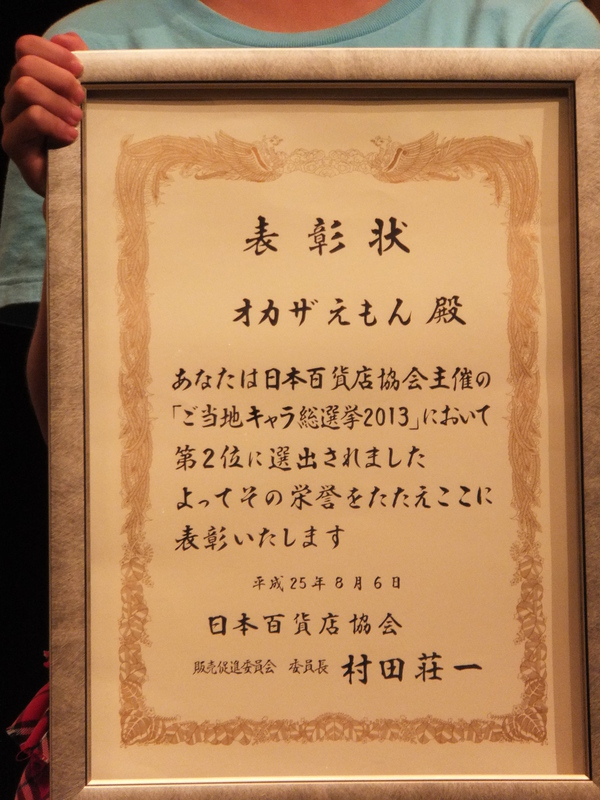 表彰状
オカザえもん 殿
あなたは日本百貨店協会主催の
「ご当地キャラ総選挙2013」において
第2位に選出されました
よってその栄誉をたたえここに
表彰いたします
平成25年8月6日
日本百貨店協会
販売促進委員会 委員長 村田荘一